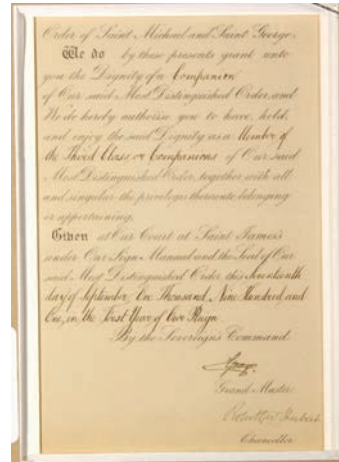 Order of Saint Michael and Saint George,
We do by these presents grant unto
you the Dignity of a Companion
of Our said Most Distinguished Order, and
We do hereby authorise you to have, hold,
and enjoy the said Dignity as a Member of
the Third Class or Companions of Our said
Most Distinguished Order, together with all
and singular the privileges thereunto belonging
or appertaining.
Given at Our Court at Saint James's
under Our Sign Manual and the Seal of Our
said Most Distinguished Order this Seventeenth
day of September, One Thousand, Nine Hundred and
One, in the First Year of Our Reign.
By the Sovereign's Command.
Grand Master.
Chancellor.